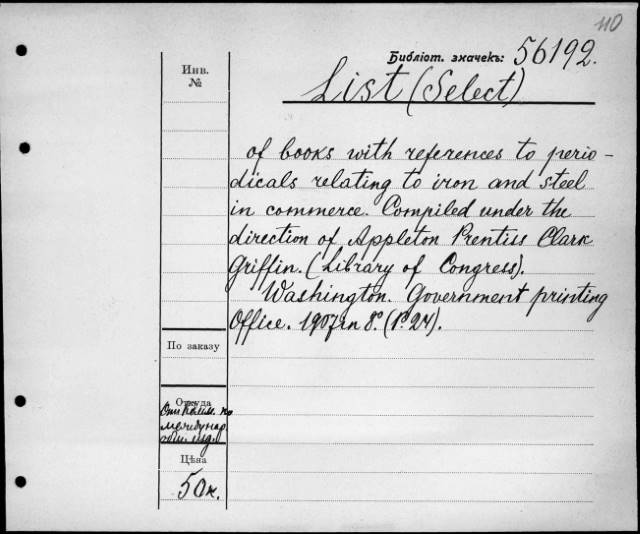 110
Библіот. значекъ: 56192.
Инв.
№
List (Select)
of books with references to perio-
dicals relating to iron and steel
in commerce. Compiled under the
direction of Appleton Prentiss Clark
Griffin. (Library of Congress).
Washington. Government printing
Office. 1907 in 8º. (1º. 24).
По заказу
Откуда
междунар.
Цѣна
50к.